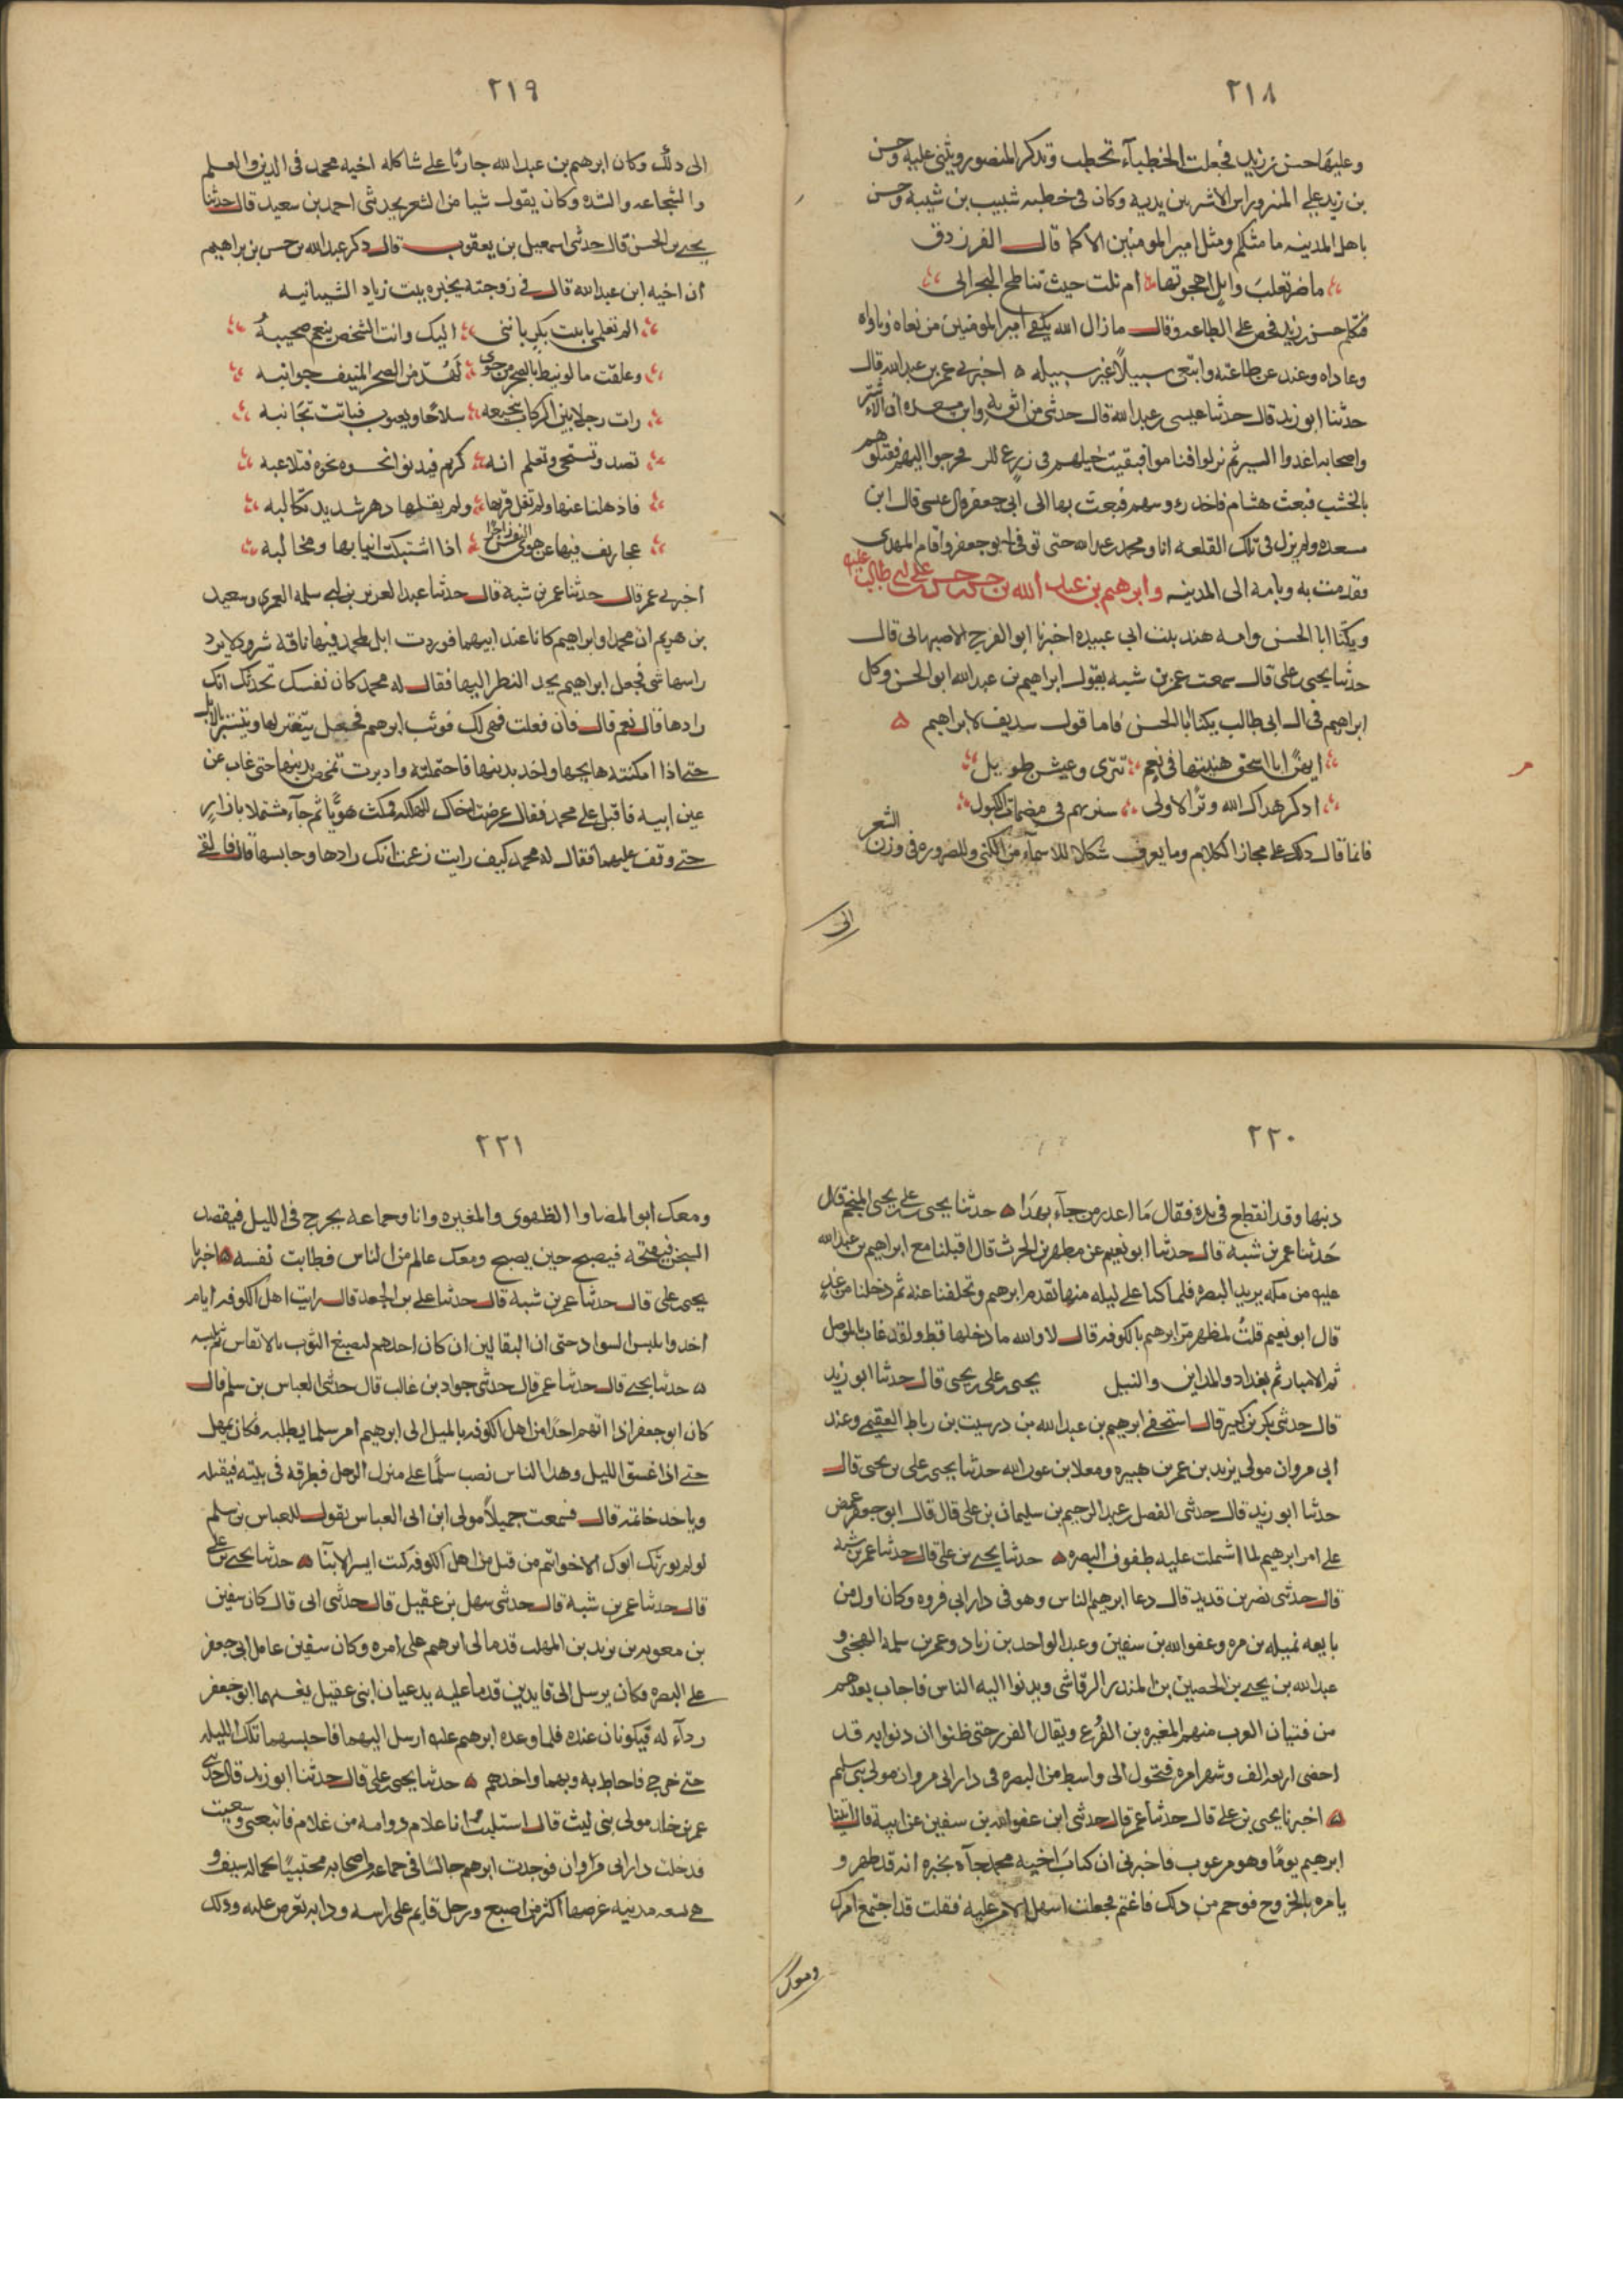 ٢١٨
وعليها حسن بن زيد فجعلت الخطباء تخطب وتذكر المنصور ويثنى عليه وحسن
بن زيد على المنبر وراس الاشتر بين يديه وكان فى خطبه شبيب بن شيبه وحسن
ياهل المدينه ما مثلكم ومثل امير المومنين الا كما قال الفرزدق
ما ضر تغلب وايل اهجوتها ام بلت حيث تناطح البحران
فتكلم حسن بن زيد فحض على الطاعه وقال ما زال الله يكفى امير المومنين من بغاه وناواه
وعاداه وعند عن طاعته وابتغى سبيلا غير سبيله ه اخبرنى عمر بن عبدالله قال
حدثنا ابو زيد قال حدثنا عيسى بن عبدالله قال حدثنى من اثق به وابن مسعده ان الاشتر
واصحابه اغدوا السير ثم نزلوا فناموا فبقيت خيلهم فى زرع للزط فخرجوا اليهم فقتلوهم
بالخشب فبعث هشام فاخذ رءوسهم فبعث بها الى ابى جعفر قال عيسى قال ابن
مسعده ولم يزل فى تلك القلعه انا ومحمد بن عبدالله حتى توفى ابو جعفر واقام المهدى
فقدمت به وبامه الى المدينه وابرهيم بن عبد الله بن حسن بن حسن بن على بن ابى طالب عليه
ويكنا ابا الحسن وامه هند بنت ابى عبيده اخبرنا ابو الفرج الاصبهانى قال
حدثنا يحيى بن على قال سمعت عمر بن شبه يقول ابراهيم بن عبدالله ابو الحسن وكل
ابراهيم فى ال ابى طالب يكنا ابا الحسن فاما قول سديف لابراهيم ه
ايهًا ابا اسحق هنيتها فى نعم تترى وعيش طويل
اذكر هداك الله وتر الاولى سير بهم فى مصمتات الكبول
فانما قال ذلك على مجاز الكلام وما يعرف شكلا للاسماء من الكنى وللضروره فى وزن الشعر
الى
٢١٩
الى ذلك وكان ابرهيم بن عبدالله جاريًا على شاكله اخيه محمد فى الدين والعلم
والشجاعه والشده وكان يقول شيا من الشعر حدثنى احمد بن سعيد قال حدثنا
يحيى بن الحسن قال حدثنى اسمعيل بن يعقوب قال ذكر عبدالله بن حسن بن ابراهيم
ان اخيه ابن عبدالله قال فى زوجته بحيره بنت زياد الشيبانيه
الم تعلمى يا بنت بكر باننى اليك وانت الشخص ينعم صحيبهُ
وعلقت ما لو نيط بالصخر من جوى لَهُدّ من الصخر المنيف جوانبه
رات رجلا بين الركاب ضجيعه سلاحًا ويعبوب فباتت تجانبه
تصد وتستحى وتعلم انه كريم فيدنو نحوه فتلاعبه
فاذهلنا عنها ولم نقل قربها ولم يقلها دهر شديد تكالبه
عجاريف فيها عن هوى النفس زاجرًا اذا اشتبكت انيابها ومخالبه
اخبرنى عمر قال حدثنا عمر بن شبة قال حدثنا عبد العزيز بن ابى سلمه العمرى وسعيد
بن هريم ان محمدا وابراهيم كانا عند ابيهما فوردت ابل لمحمد فيها ناقة شرود لا يرد
راسها شى فجعل ابراهيم يحد النظر اليها فقال له محمد كان نفسك تحدثك انك
رادها قال نعم قال فان فعلت فهى لك فوثب ابرهيم فجعل يتغير لها ويتستر بالابل
حتى اذا امكنته هايجها واخذ بذنبها فاحتملته وادبرت تمخض بذنبها حتى غاب عن
عين ابيه فاقبل على محمد فقال عرضت اخاك للهلكه فمكث هويًّا ثم جاء مشتملا بازاره
حتى وقف عليهما فقال له محمد كيف رايت زعمت انك رادها وحابسها قال فالقى
٢٢٠
ذنبها وقد انقطع فى يده فقال مَا اعذر من جآء بهذا ه حدثنا يحيى بن على بن يحيى المنجم قال
حَدثنا عمر بن شبة قال حدثنا ابو نعيم عن مطهر بن الحرث قال اقبلنا مع ابراهيم بن عبدالله
عليه من مكه يريد البصره فلما كنا على ليله منها تقدم ابرهيم وتخلفنا عنه ثم دخلنا من غدٍ
قال ابو نعيم قلتُ لمطهر مر ابرهيم بالكوفه قال لا والله ما دخلها قط ولقد غاب بالموصل
ثم الانبار ثم بغداد والمداين والنيل يحيى بن على بن يحيى قال حدثنا ابو زيد
قال حدثنى بكر بن كثير قال استخفى ابرهيم بن عبدالله من درسيت بن رباط العقيمى وعند
ابى مروان مولى يزيد بن عمر بن هبيره ومعلا بن عون الله حدثنا يحيى بن على بن يحيى قال
حدثنا ابو زيد قال حدثنى الفضل بن عبدالرحيم بن سليمان بن على قال قال ابو جعفر غمض
على امر ابرهيم لما اشملت عليه طفوف البصره ه حدثنا يحيى بن على قال حدثنا عمر بن شبه
قال حدثنى نصر بن قديد قال دعا ابرهيم الناس وهو فى دار ابى فروه وكان اول من
بايعه نميله بن مره وعفو الله بن سفين وعبد الواحد بن زياد وعمر بن سلمة الهجيمى و
عبدالله بن يحيى بن الحصين بن المنذر الرقاشى وندبوا اليه الناس فاجاب بعدهم
من فتيان العرب منهم المغيره بن الفزع ويقال الفرر حتى ظنوا ان ديوانه قد
احصى اربعة الف وشهر امره فتحول الى واسط من البصره فى دار ابى مروان مولى بنى سليم
ه اخبرنا يحيى بن على قال حدثنا عمر قال حدثنى ابن عفو الله بن سفين عن ابيه قال اتينا
ابرهيم يومًا وهو مرعوب فاخبرنى ان كتاب اخيه محمد جآه يخبره انه قد ظهر و
يامره بالخروج فوجم من ذلك فاغتم فجعلت اسهل الامر عليه فقلت قد اجتمع امرك
ومعك
٢٢١
ومعك ابو المضا والطهوى والمغيره وانا وجماعه نخرج فى الليل فيقصد
السجن فيفتحه فيصبح حين يصبح ومعك عالم من الناس فطابت نفسه ه اخبرنا
يحيى بن على قال حدثنا عمر بن شبة قال حدثنا على بن الجعد قال رايت اهل الكوفه ايام
اخذوا بلبس السواد حتى ان البقالين ان كان احدهم ليصبغ الثوب بالانقاس ثم يلبسه
ه حدثنا يحيى قال حدثنا عمر قال حدثنى جواد بن غالب قال حدثنى العباس بن سلم قال
كان ابو جعفر اذا اتهم احدًا من اهل الكوفه بالميل الى ابرهيم امر سلما بطلبه فكان يمهل
حتى اذا غسق الليل وهدا الناس نصب سلمًا على منزل الرجل فيطرقه فى بيته فيقتله
وياخذ خاتمه قال فسمعت جميلاً مولى ابن ابى العباس يقول للعباس بن سلم
لو لم يورثك ابوك الا خواتيم من قتل من اهل الكوفه كنت ايسر الابنا ه حدثنا يحيى بن على
قال حدثنا عمر بن شبة قال حدثنى سهل بن عقيل قال حدثنى ابى قال كان سفين
بن معويه بن يزيد بن المهلب قدما لى ابرهيم على امره وكان سفين عامل ابى جعفر
على البصره فكان يرسل الى قايدين قدما عليه يدعيان ابنى عقيل بعثهما ابو جعفر
رداء له فيكونان عنده فلما وعده ابرهيم عليه ارسل اليهما فاحبسهما تلك الليله
حتى خرج فاحاط به وبهما واخذهم ه حدثنا يحيى بن على قال حدثنا ابو زيد قال حدثنى
عمر بن خالد مولى بنى ليث قال استلبتُ انا غلام دوامه من غلام فاتبعنى وسعيت
فدخلت دار ابى مروان فوجدت ابرهيم جالسًا فى جماعه واصحابه محتبيًا بحماله سيف و
هى نسعه مدينيه عرضها اكثر من اصبع ورجل قايم على راسه ودابه تعرض عليه وذلك